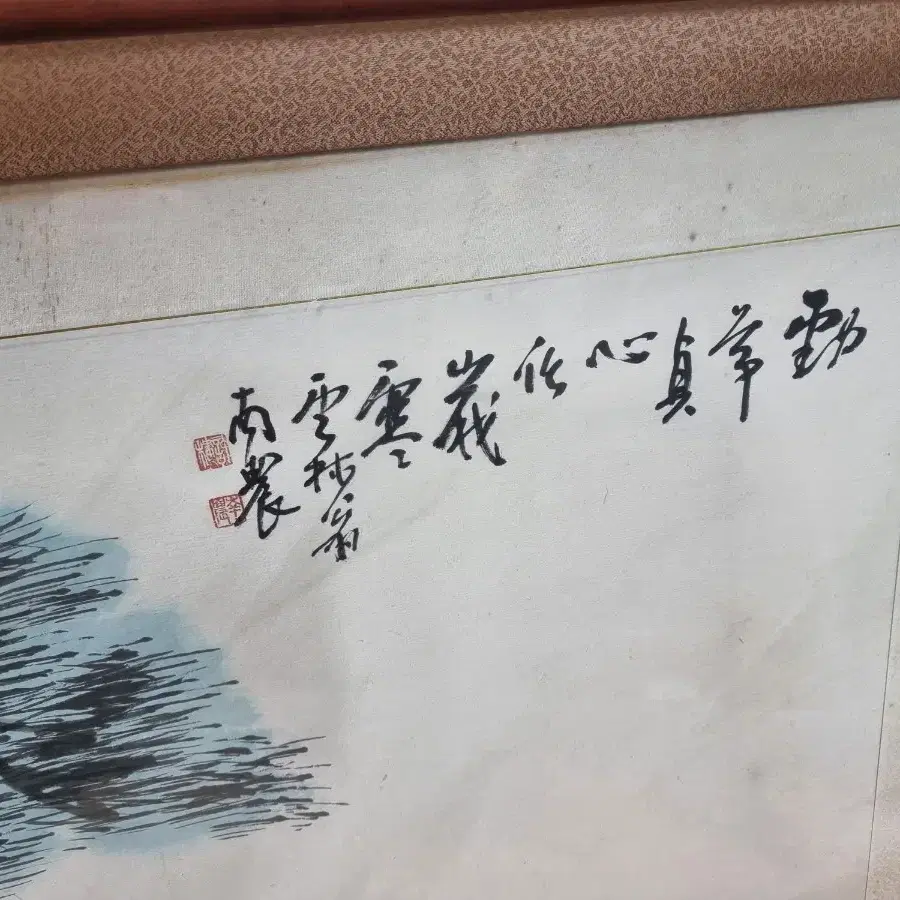 勁節貞心任歲寒
雲林
南農